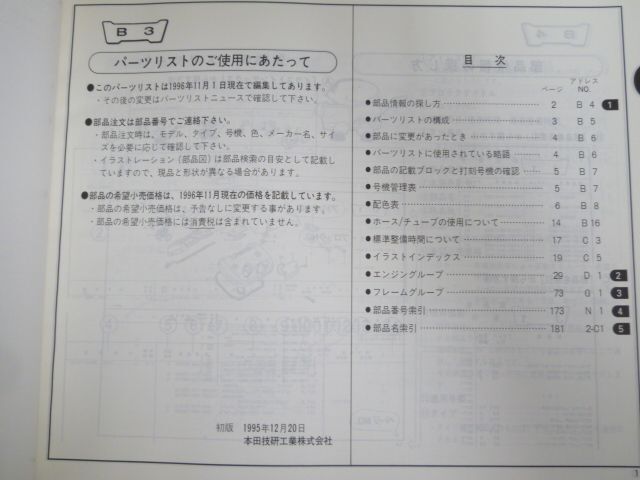 B 3
パーツリストのご使用にあたって
●このパーツリストは1996年11月1日現在で編集してあります。
・その後の変更はパーツリストニュースで確認して下さい。
●部品注文は部品番号でご連絡下さい。
・部品注文時は、モデル、タイプ、号機、色、メーカー名、サイ
ズを必要に応じて確認して下さい。
・イラストレーション（部品図）は部品検索の目安として記載し
ていますので、現品と形状が異なる場合があります。
●部品の希望小売価格は、1996年11月現在の価格を記載しています。
・部品の希望小売価格は、予告なしに変更する事があります。
・部品の希望小売価格には消費税は含まれていません。
初版 1995年12月20日
本田技研工業株式会社
目次
ページ アドレスNO.
●部品情報の探し方 2 B 4 1
●パーツリストの構成 3 B 5
●部品に変更があったとき 4 B 6
●パーツリストに使用されている略語 4 B 6
●部品の記載ブロックと打刻号機の確認 5 B 7
●号機管理表 5 B 7
●配色表 6 B 8
●ホース/チューブの使用について 14 B16
●標準整備時間について 17 C 3
●イラストインデックス 19 C 5
●エンジングループ 29 D 1 2
●フレームグループ 73 G 1 3
●部品番号索引 173 N 1 4
●部品名索引 181 2-C1 5